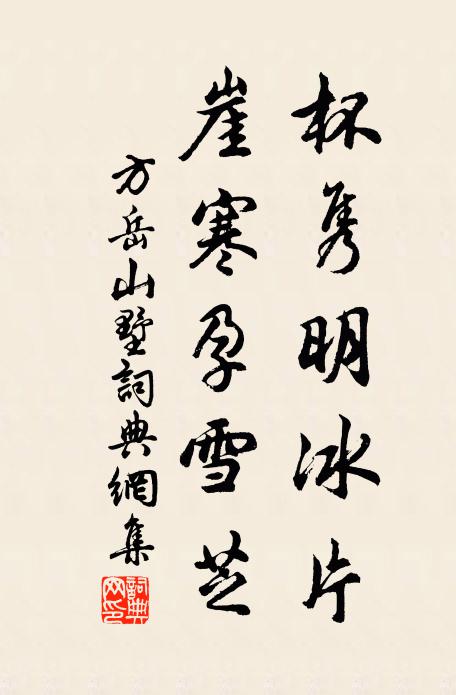 杯隽明冰片
崖寒孕雪芝
方岳山墅詞典網集
詞典網印